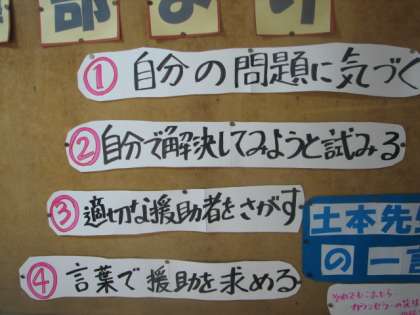 部より
① 自分の問題に気づく
② 自分で解決してみようと試みる
③ 適切な援助者をさがす
土本先生
の一言
④ 言葉で援助を求める